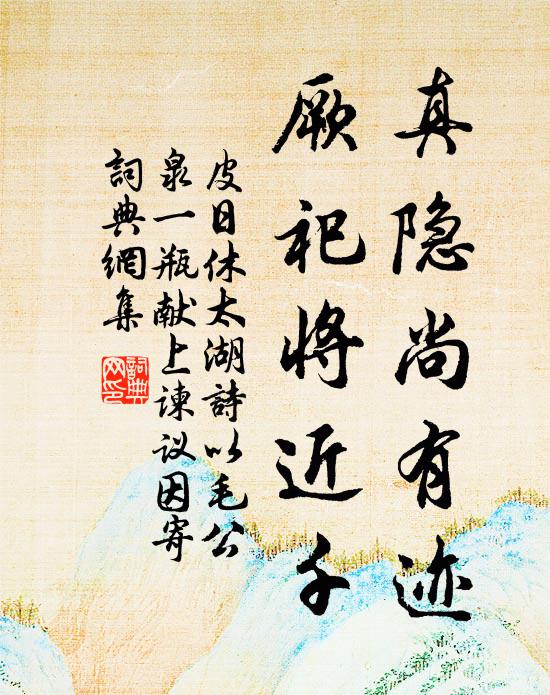 真隐尚有迹
厥祀将近千
皮日休太湖詩以毛公
泉一瓶献上谏议因寄
詞典網集
詞典
網印